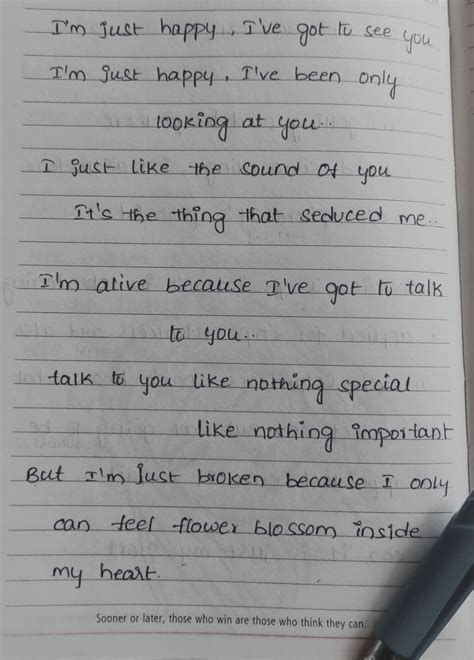 I'm just happy, I've got to see you
I'm just happy, I've been only
looking at you..
I just like the sound of you
It's the thing that seduced me..
I'm alive because I've got to talk
to you..
talk to you like nothing special
like nothing important
But I'm just broken because I only
can feel flower blossom inside
my heart.
Sooner or later, those who win are those who think they can.